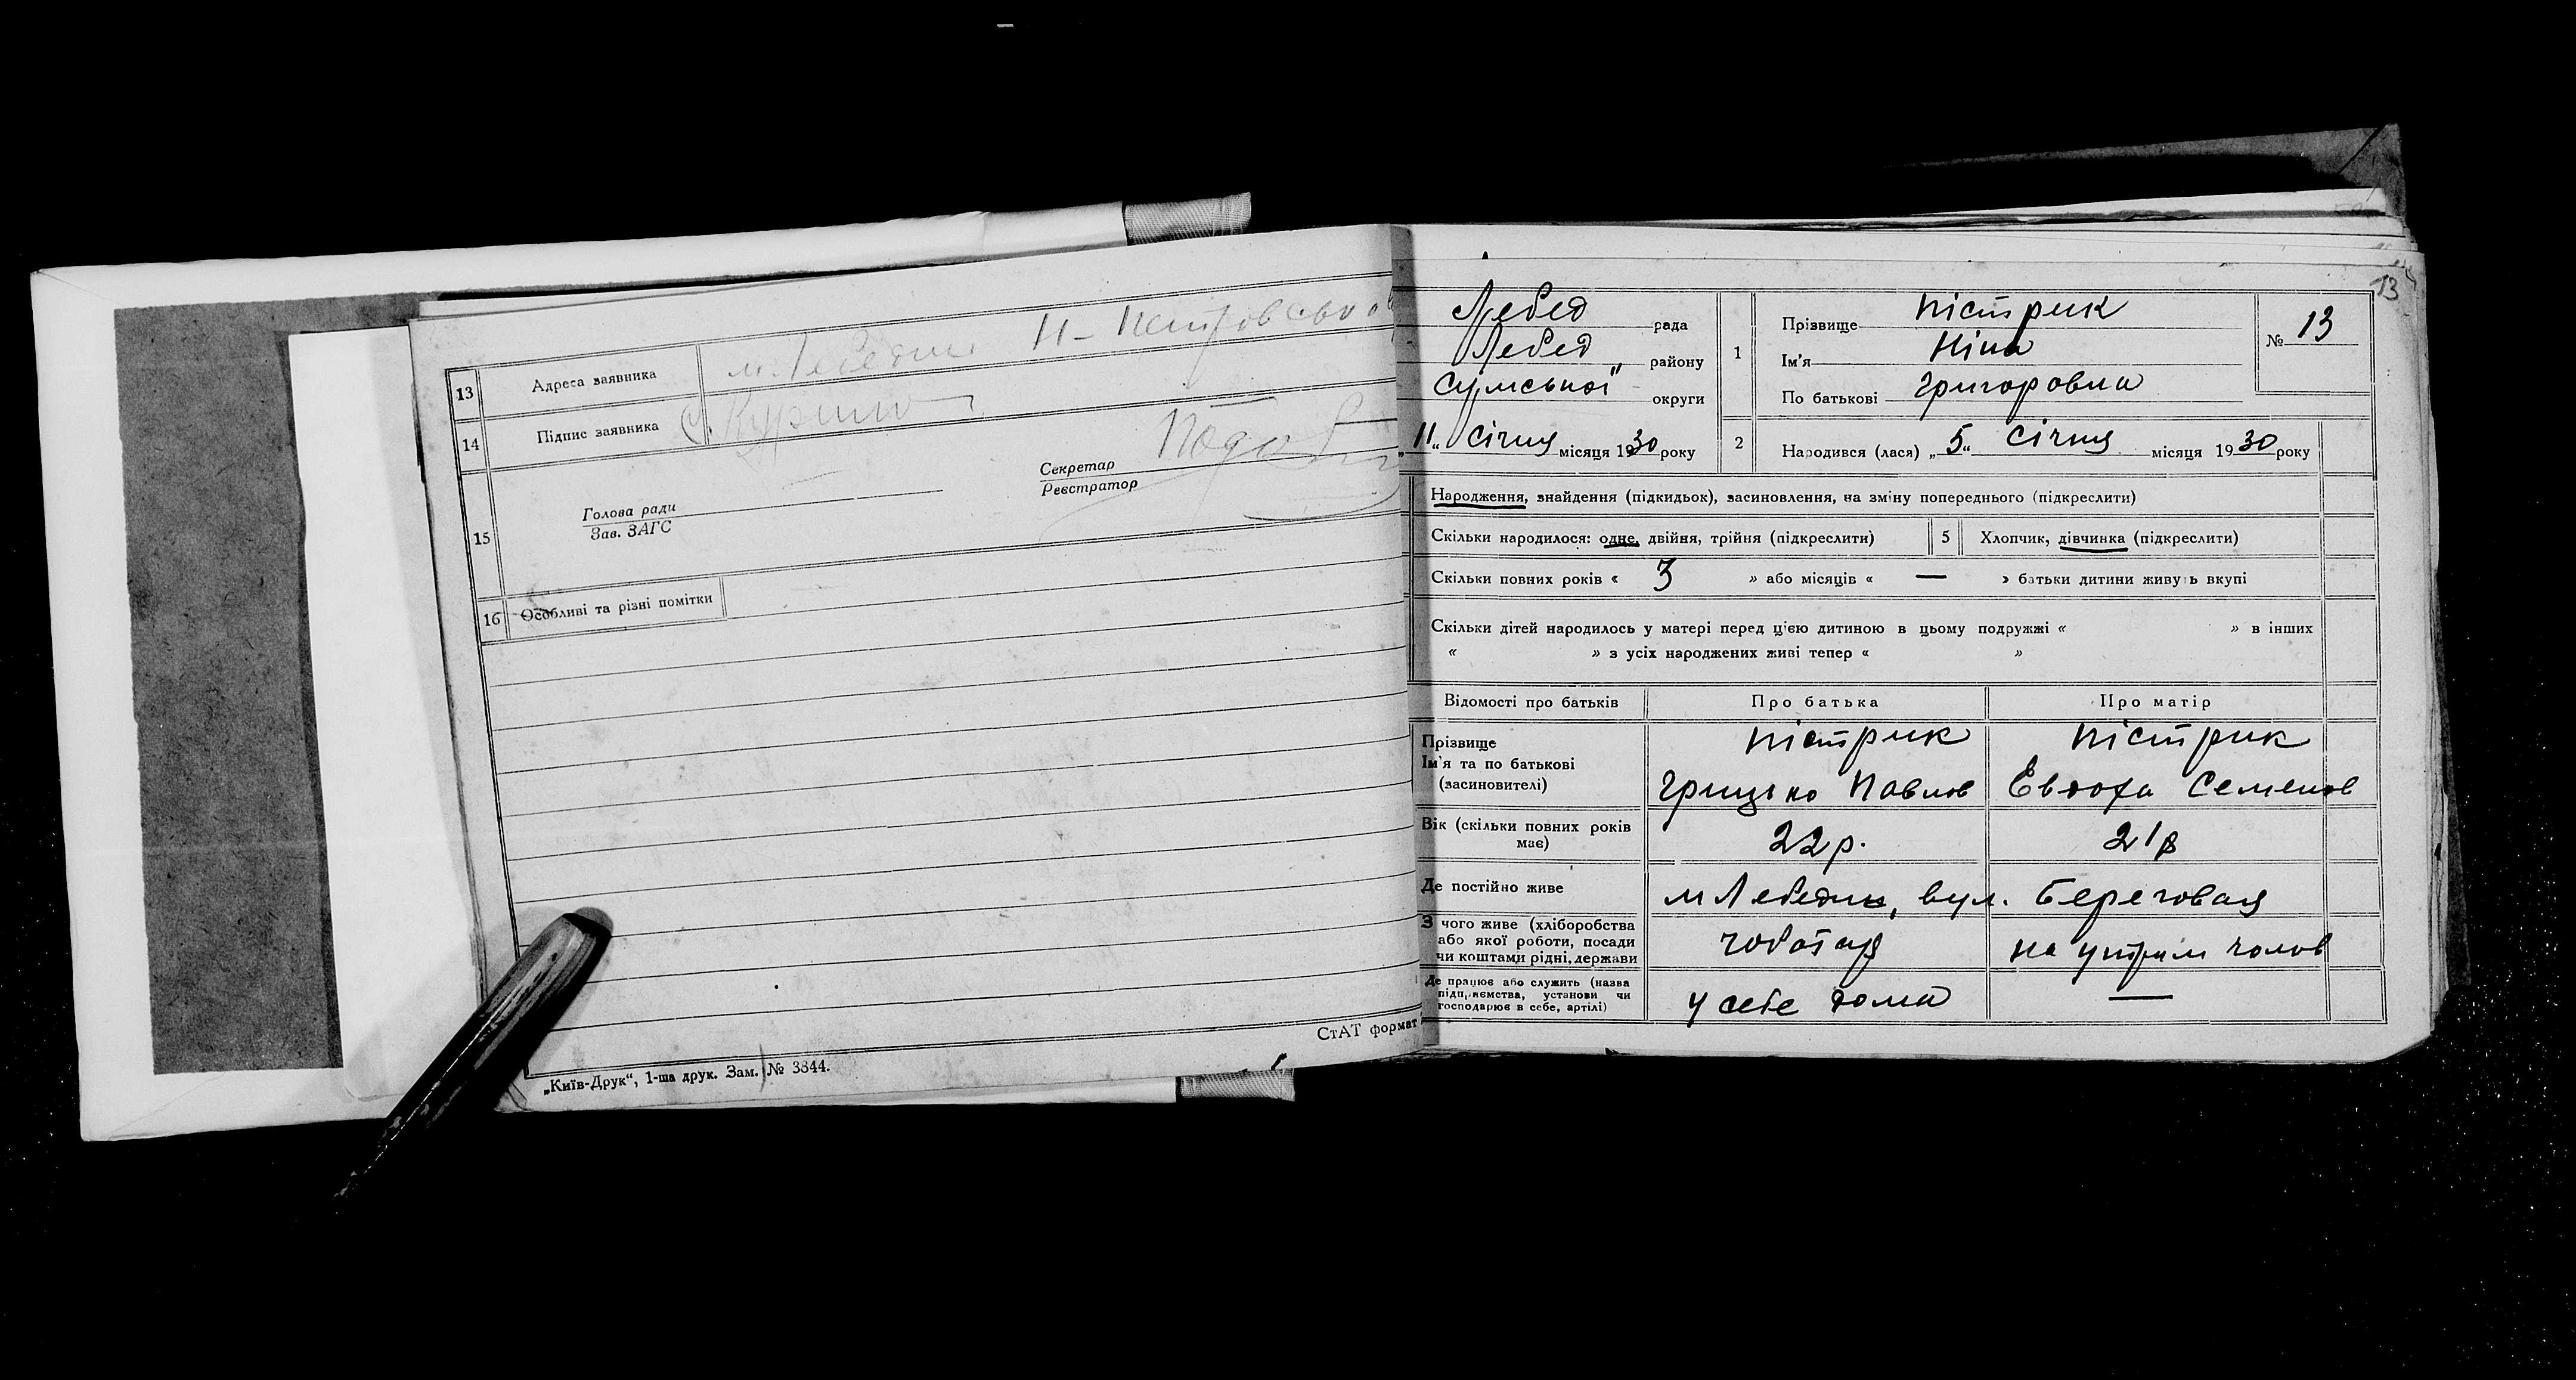 13 Адреса заявника м. Лебедин Н-
14 Підпис заявника
15 Голова ради
Зав. ЗАГС
Секретар
Реєстратор
16 Особливі та різні помітки
СтАТ формат
„Київ-Друк“, 1-ша друк. Зам. № 3844.
13
Лебед рада
Лебед району
Сумської округи
„11“ Січня місяця 1930 року
1 Прізвище Пістрик
Ім'я Ніна
По батькові Григоровна
№ 13
2 Народився (лася) „5“ Січня місяця 1930 року
Народження, знайдення (підкидьок), засиновлення, на зміну попереднього (підкреслити)
Скільки народилося: одне, двійня, трійня (підкреслити) 5 Хлопчик, дівчинка (підкреслити)
Скільки повних років « 3 » або місяців « — » батьки дитини живуть вкупі
Скільки дітей народилось у матері перед цією дитиною в цьому подружжі « » в інших
« » з усіх народжених живі тепер « »
Відомості про батьків Про батька Про матір
Прізвище Пістрик Пістрик
Ім'я та по батькові
(засновителі) Грицько Павлов Евдоха Семенов
Вік (скільки повних років
має) 22 р. 21 р
Де постійно живе м Лебедин, вул. Береговая
З чого живе (хліборобства
або якої роботи, посади
чи коштами рідні, держави чоботар на утрим чолов
Де працює або служить (назва
підприємства, установи чи
господарює в себе, артілі) у себе дома —